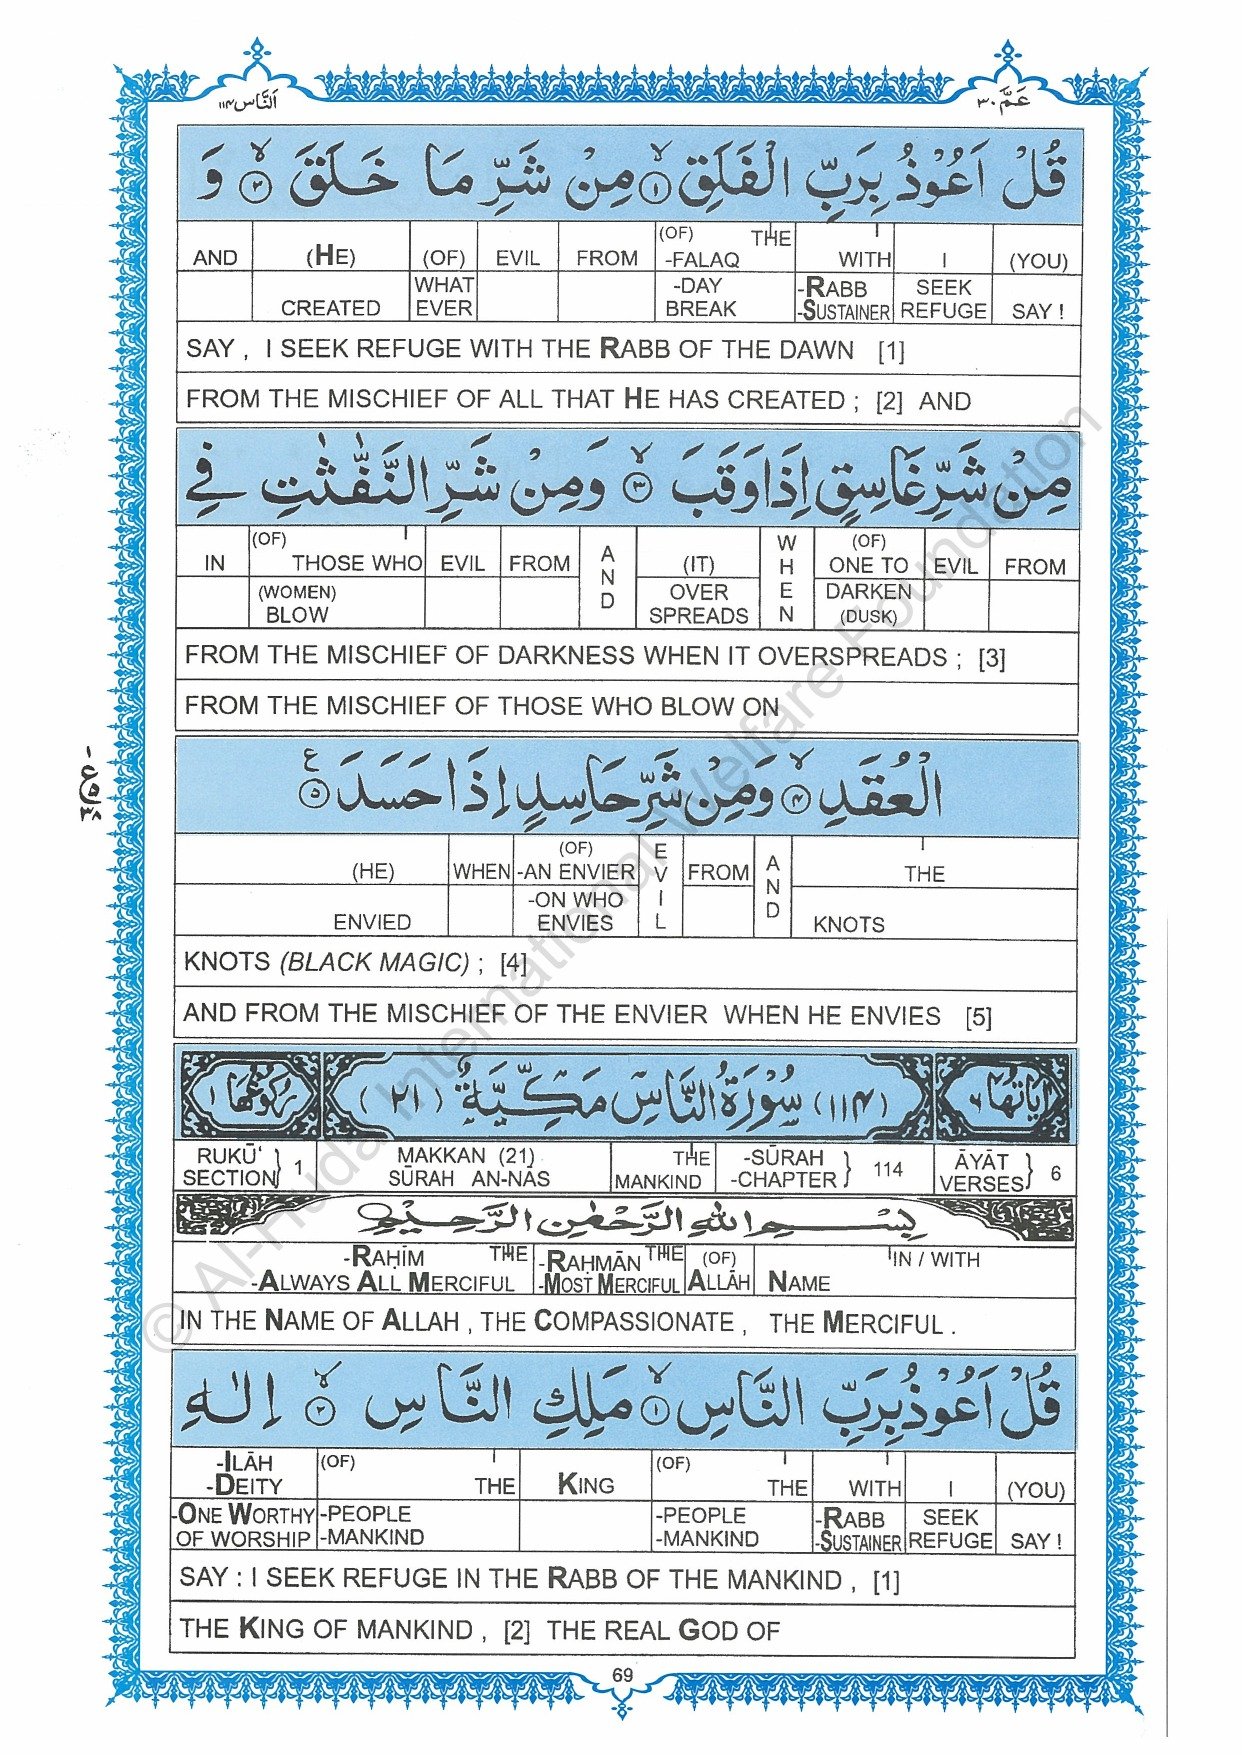 اَلنَّاس ١١٤
عَمَّ ٣٠
قُلْ اَعُوْذُ بِرَبِّ الْفَلَقِ ۙ۝١ مِنْ شَرِّ مَا خَلَقَ ۙ۝٢ وَ
AND (HE) (OF) EVIL FROM (OF) -FALAQ THE WITH I (YOU)
CREATED WHAT EVER -DAY BREAK -RABB -SUSTAINER SEEK REFUGE SAY !
SAY , I SEEK REFUGE WITH THE RABB OF THE DAWN [1]
FROM THE MISCHIEF OF ALL THAT HE HAS CREATED ; [2] AND
مِنْ شَرِّ غَاسِقٍ اِذَا وَقَبَ ۙ۝٣ وَمِنْ شَرِّ النَّفّٰثٰتِ فِي
IN (OF) THOSE WHO EVIL FROM AND (IT) WHEN (OF) ONE TO EVIL FROM
(WOMEN) BLOW OVER SPREADS DARKEN (DUSK)
FROM THE MISCHIEF OF DARKNESS WHEN IT OVERSPREADS ; [3]
FROM THE MISCHIEF OF THOSE WHO BLOW ON
الْعُقَدِ ۙ۝٤ وَمِنْ شَرِّ حَاسِدٍ اِذَا حَسَدَ ۝٥ ع
(HE) WHEN (OF) -AN ENVIER EVIL FROM AND THE
ENVIED -ON WHO ENVIES KNOTS
KNOTS (BLACK MAGIC) ; [4]
AND FROM THE MISCHIEF OF THE ENVIER WHEN HE ENVIES [5]
اٰيَاتُهَا ٦ (١١٤) سُوْرَةُ النَّاسِ مَكِّيَّةٌ (٢١) رُكُوْعُهَا ١
RUKŪ‘ SECTION } 1 MAKKAN (21) SŪRAH AN-NĀS THE MANKIND -SŪRAH -CHAPTER } 114 ĀYĀT VERSES } 6
بِسْمِ اللهِ الرَّحْمٰنِ الرَّحِيْمِ
-RAḤĪM THE -RAḤMĀN THE (OF) IN / WITH
-ALWAYS ALL MERCIFUL -MOST MERCIFUL ALLĀH NAME
IN THE NAME OF ALLAH , THE COMPASSIONATE , THE MERCIFUL .
قُلْ اَعُوْذُ بِرَبِّ النَّاسِ ۙ۝١ مَلِكِ النَّاسِ ۙ۝٢ اِلٰهِ
-ILĀH -DEITY (OF) THE KING (OF) THE WITH I (YOU)
-ONE WORTHY OF WORSHIP -PEOPLE -MANKIND -PEOPLE -MANKIND -RABB -SUSTAINER SEEK REFUGE SAY !
SAY : I SEEK REFUGE IN THE RABB OF THE MANKIND , [1]
THE KING OF MANKIND , [2] THE REAL GOD OF
69
© Al-Huda International Welfare Foundation